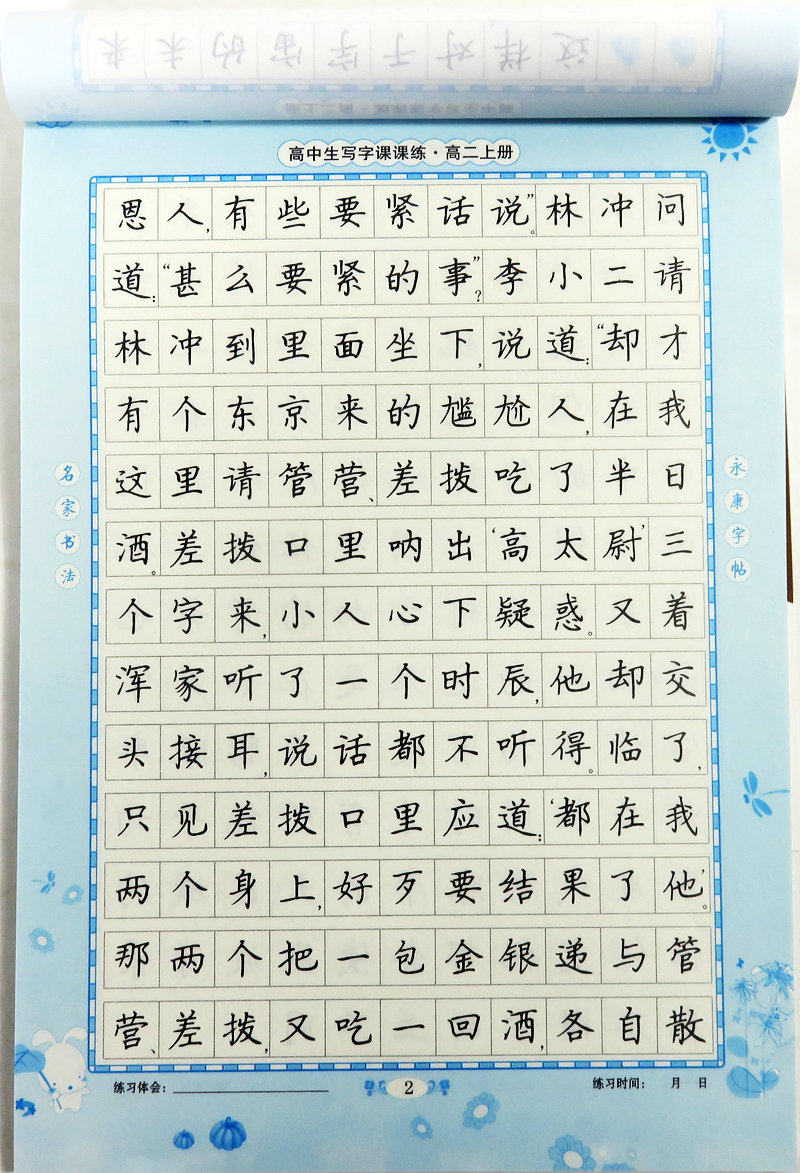 这样对于宇宙的未来
高中生写字课课练·高二上册
高中生写字课课练·高二上册
恩人,有些要紧话说”。林冲问
道:“甚么要紧的事”?李小二请
林冲到里面坐下,说道:“却才
有个东京来的尴尬人,在我
这里请管营、差拨吃了半日
酒。差拨口里呐出‘高太尉’三
个字来,小人心下疑惑。又着
浑家听了一个时辰,他却交
头接耳,说话都不听得。临了,
只见差拨口里应道:‘都在我
两个身上,好歹要结果了他’。
那两个把一包金银递与管
营、差拨,又吃一回酒,各自散
名家书法
永康字帖
练习体会:
2
练习时间: 月 日